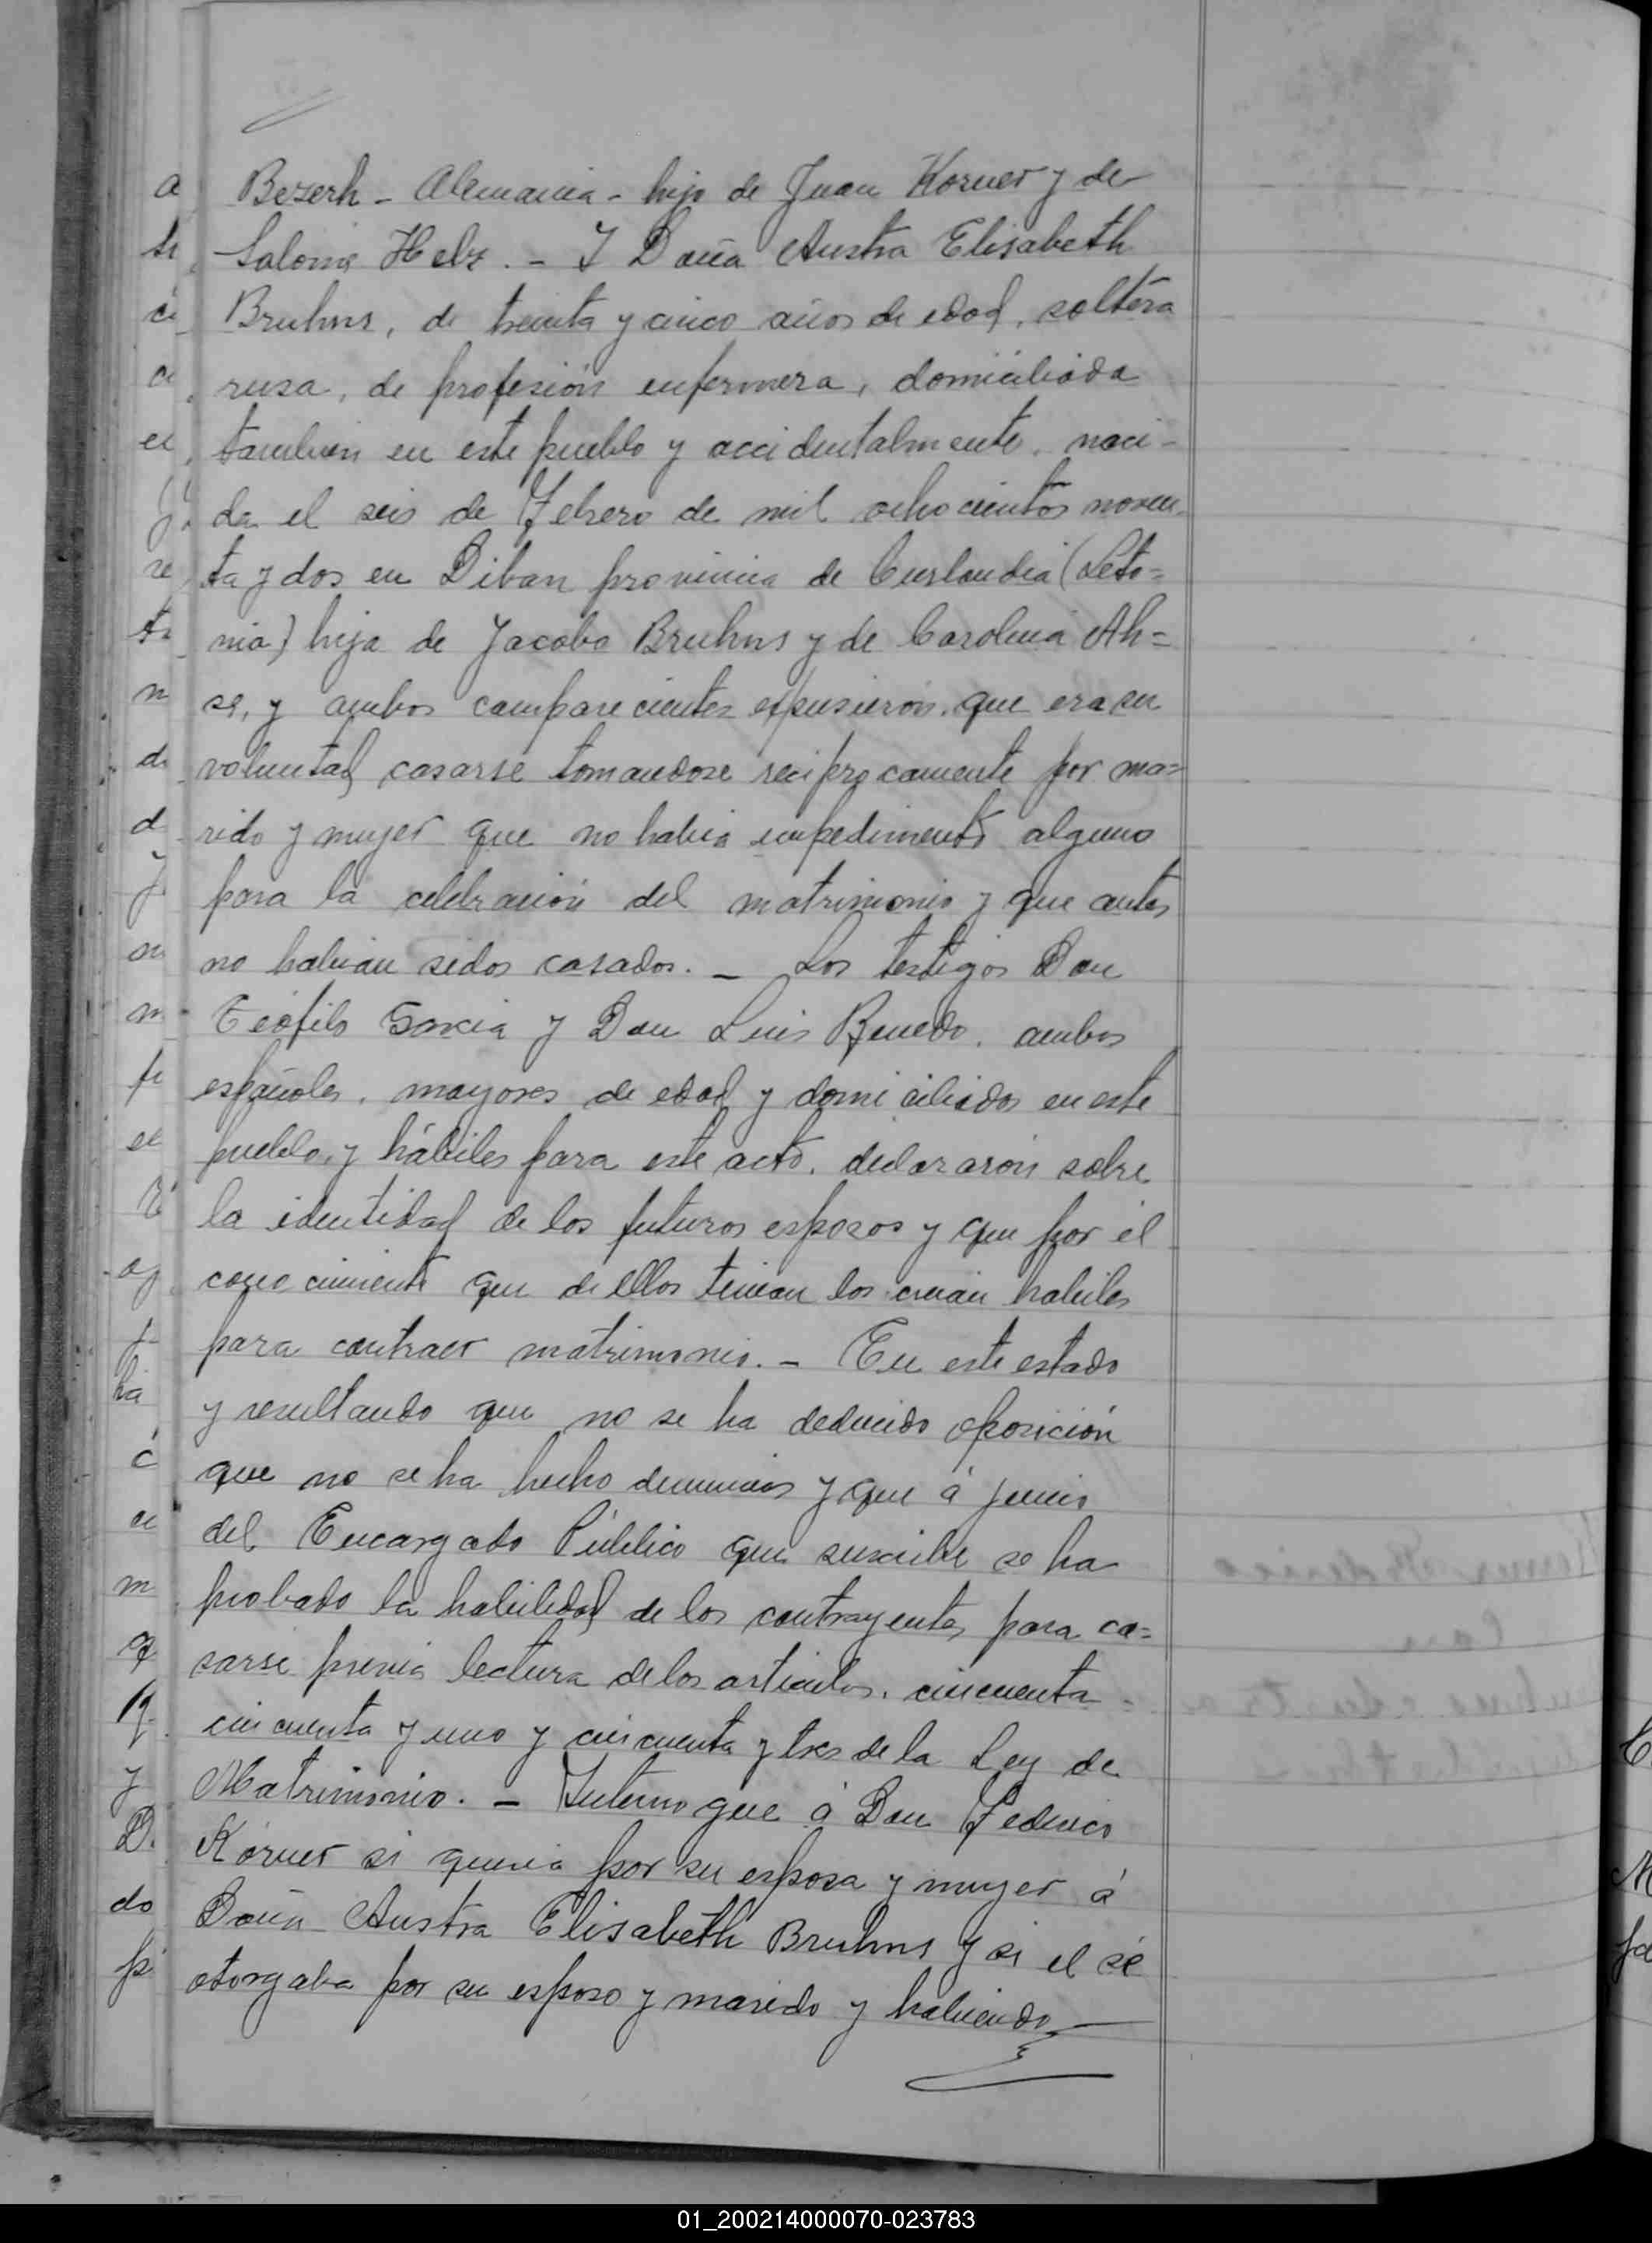 Bezerh - Alemania - hijo de Juan Korner y de
Salomé Helz. - Y Doña Austra Elisabeth
Bruhns, de treinta y cinco años de edad, soltera
rusa, de profesión enfermera, domiciliada
tambien en este pueblo y accidentalmente, naci-
da el seis de Febrero de mil ochocientos noven-
ta y dos en Liban provincia de Curlandia (Leto=
nia) hija de Jacobo Bruhns y de Carolina Ah=
se, y ambos comparecientes expusieron, que era su
voluntad casarse tomandose reciprocamente por ma=
rido y mujer que no habia impedimento alguno
para la celebración del matrimonio y que antes
no habian sidos casados. - Los testigos Don
Teófilo Garcia y Don Luis Benedo, ambos
españoles, mayores de edad y domiciliados en este
pueblo, y hábiles para este acto, declararon sobre
la identidad de los futuros esposos y que por el
conocimiento que de ellos tenian los creian habiles
para contraer matrimonio. - En este estado
y resultando que no se ha deducido oposición
que no se ha hecho denuncias y que á juicio
del Encargado Público que suscribe se ha
probado la habilidad de los contrayentes para ca=
sarse previa lectura de los articulos, cincuenta -
cincuenta y uno y cincuenta y tres de la Ley de
Matrimonio. - Interrogue á Don Federico
Körner si queria por su esposa y mujer á
Doña Austra Elisabeth Bruhns y si el se
otorgaba por su esposo y marido y habiendo
01_200214000070-023783